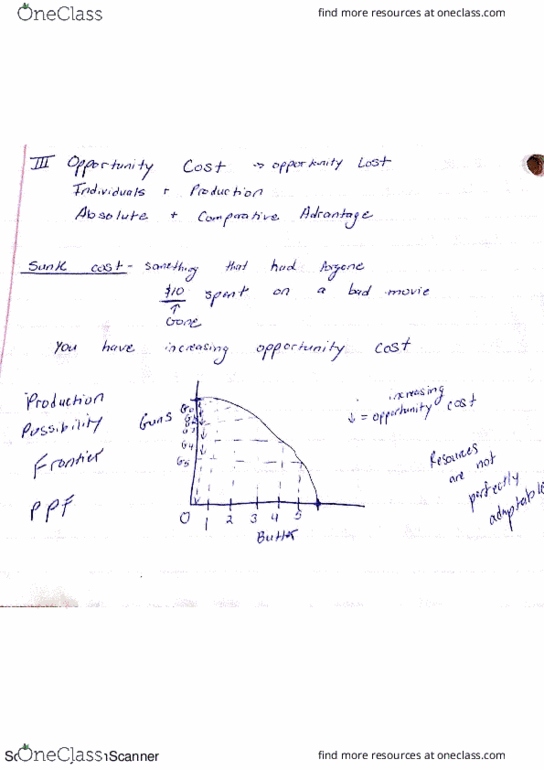 OneClass
find more resources at oneclass.com
III Opportunity Cost → opportunity Lost
Individuals + Production
Absolute + Comparative Advantage
Sunk cost - something that had forgone
$10 spent on a bad movie
↑
Gone
You have increasing opportunity cost
Production
Possibility
Frontier
PPF
Guns
G4
G5
0 1 2 3 4 5
Butter
increasing
↓ = opportunity cost
Resources
are not
perfectly
adaptable
OneClass
Scanner
find more resources at oneclass.com